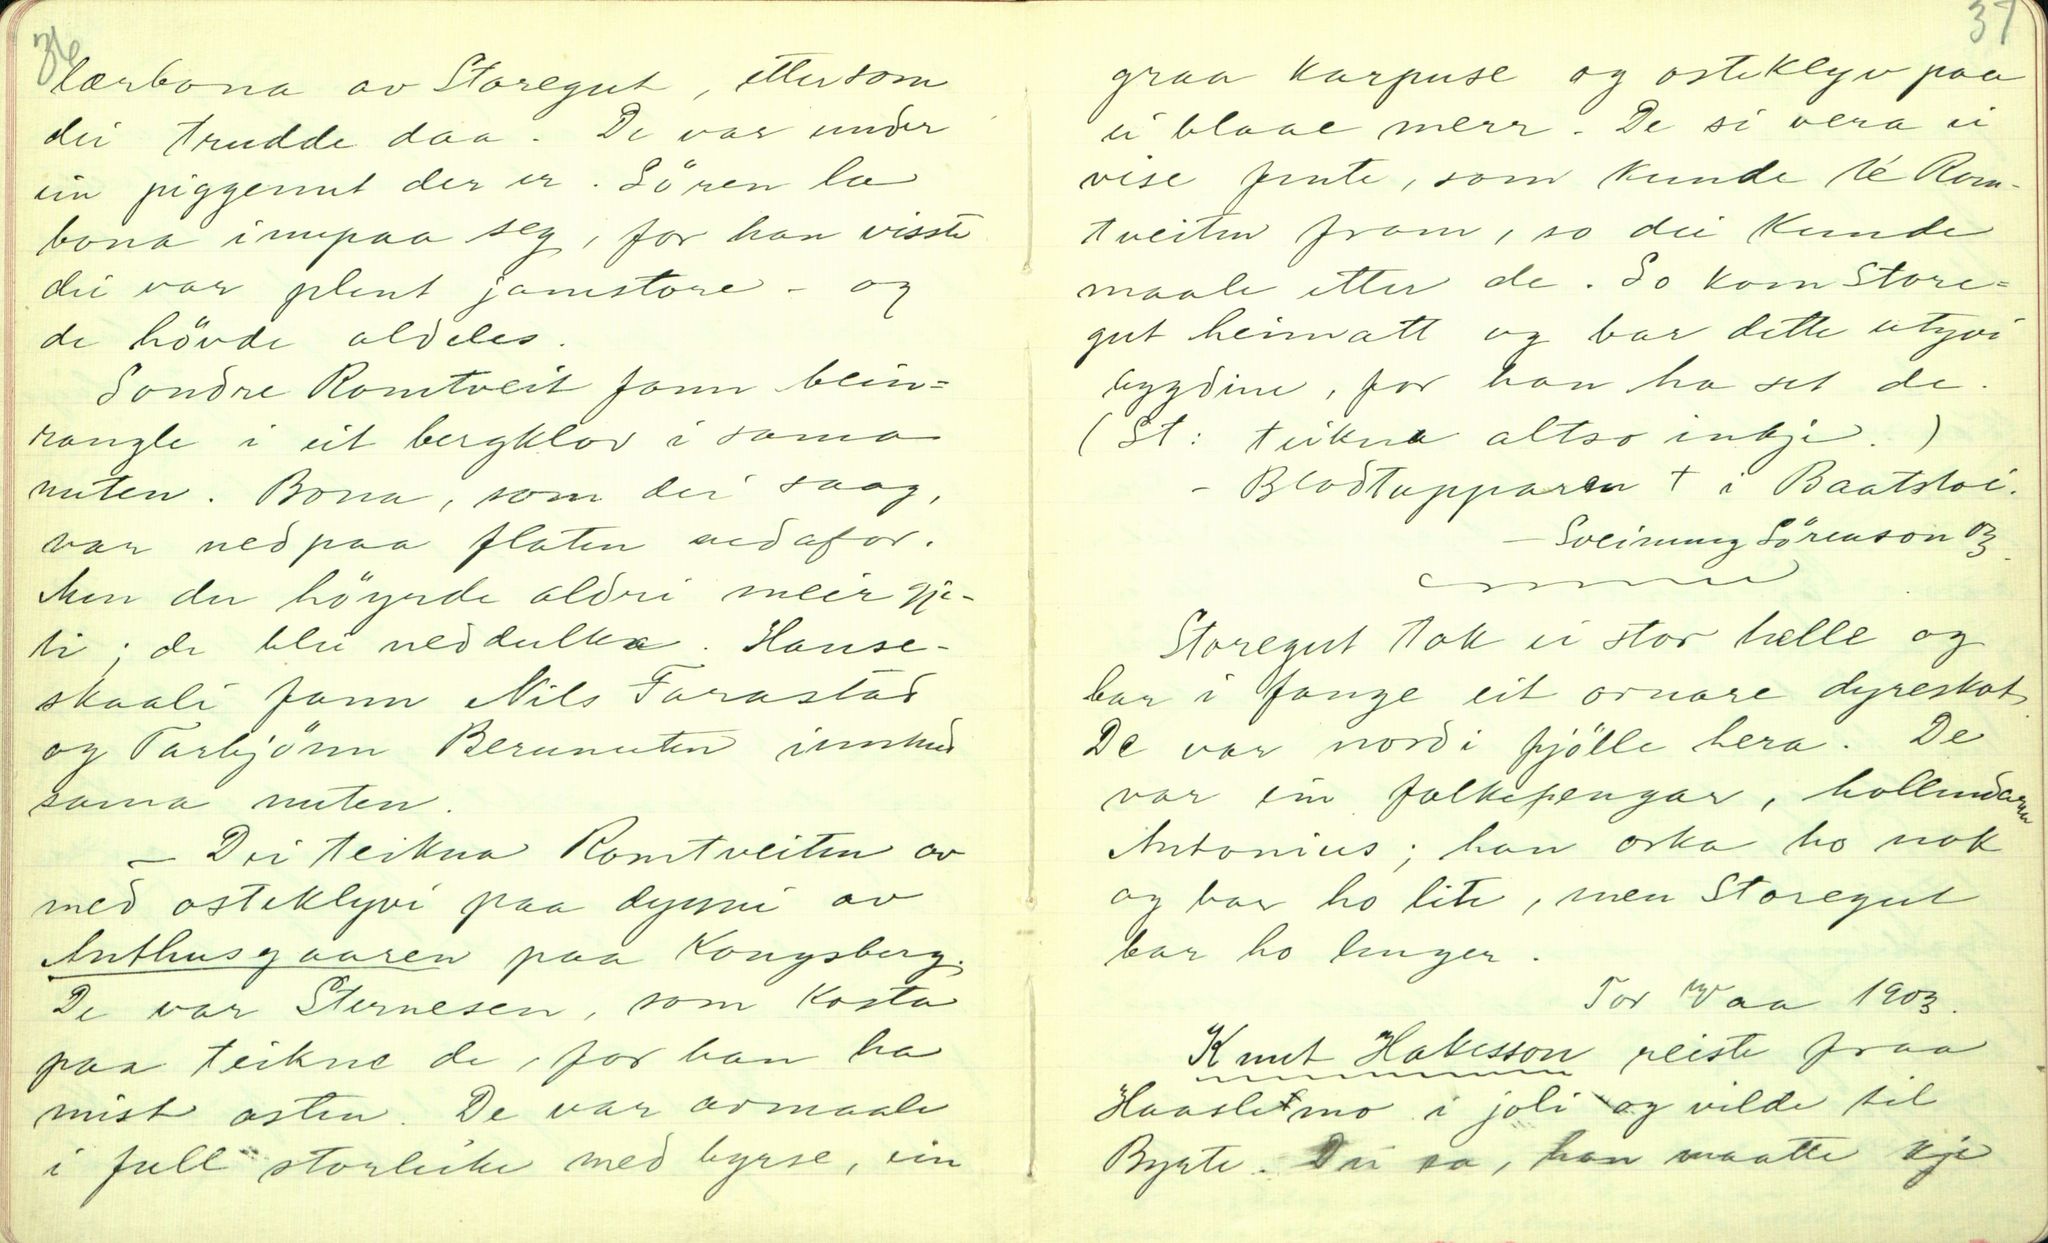 36
lærbona av Storegut, ettersom
dei trudde daa. De var under
ein piggenut der er. Sören la
bona innpaa seg, for han visste
dei var plent jamstore - og
de hövde aldeles.
Sondre Romtveit fann bein-
rangle i eit bergklov i sama
nuten. Bona, som dei saag,
var nedpaa flaten nedafor.
Men der höyrde aldri meir gje-
ti; de blei neddulka. Hause-
skaali fann Nils Farastad
og Tarbjönn Berununten
sama nuten.
- Dei teikna Romtveiten av
med osteklyvi paa dynni av
Anthusgaaren paa Kongsberg.
De var Sternesen, som kosta
paa teikne de, for han ha
mist osten. De var avmaale
i full storleike med byrse, ein
37
graa karpuse og osteklyv paa
ei blaae merr. De si vera ei
vise jente, som kunde té Rom-
tveiten fram, so dei kunde
maale etter de. So kom Store-
gut heimatt og bar dette utyvi
bygdine, for han ha set de.
(St: teikna altso inkje.)
- Blodtapparen † i Baatstoi.
- Sveinung Sörenson B.
Storegut tok ei stor helle og
bar i fange eit ornare dyreskot.
De var nordi fjölle hera. De
var ein folkepengar, hollendaren
Antonius; han orka ho nok
og bar ho lite, men Storegut
bar ho lenger.
Tor Vaa 1903.
Knut Hakesson reiste fraa
Haaslemo i joli og vilde til
Byrte. Dei sa, han maatte kje